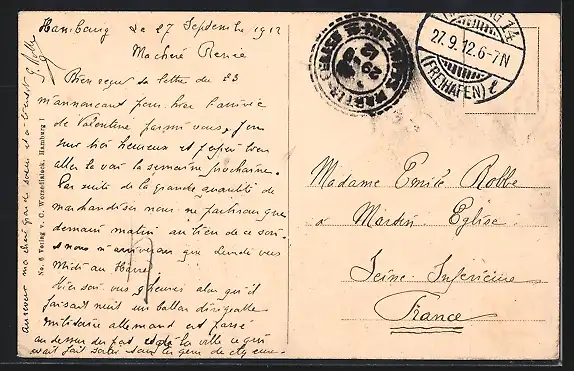 Hambourg le 27 Septembre 1912
Ma chère Renée
Bien reçu ta lettre du 23
m'annoncant pour hier l'arrivée
de Valentine parmi vous, j'en
suis très heureux et j'espère bien
aller la voir la semaine prochaine.
Par suite de la grande quantité de
marchandises nous ne partirons que
demain matin au lieu de ce soir
et nous n'arriverons que lundi vers
Midi au Havre
Hier soir vers 9 heures alors qu'il
faisait nuit un ballon dirigeable
militaire allemand est passé
au dessus du port et de la ville ce qui
avait fait sortir tous les gens de chez eux
au revoir ma chère
No. 6 Verlag v. C. Worzedialeck, Hamburg 1
HAMBURG 14
27.9.12.6-7N
(FREIHAFEN) l
Madame Emile Robbe
a Martin Eglise
Seine Inférieure
France